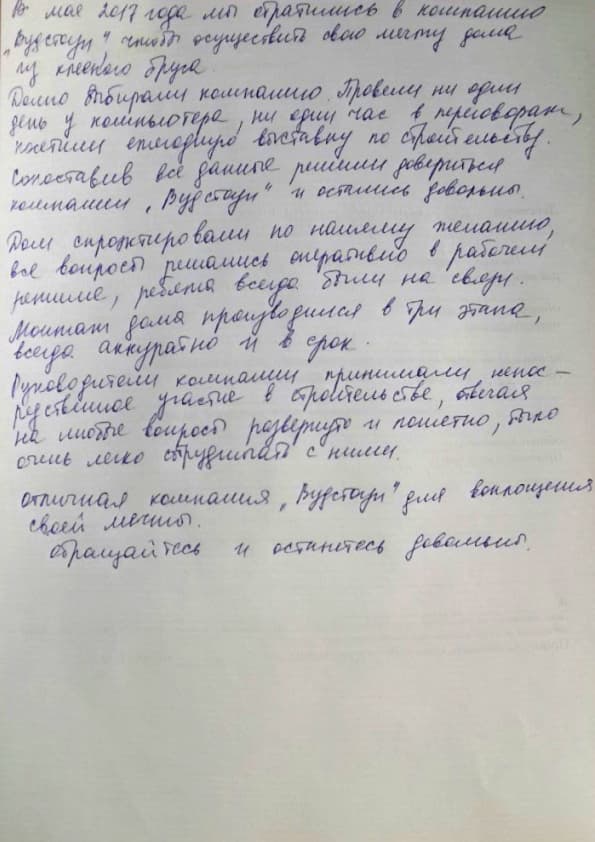 В мае 2017 года мы обратились в компанию
„Вудстоун" чтобы осуществить свою мечту дома
из клееного бруса
Долго выбирали компанию. Провели ни один
день у компьютера, ни один час в переговорах,
посетили ежегодную выставку по строительству.
Сопоставив все данные решили довериться
компании „Вудстоун" и остались довольны.
Дом спроектировали по нашему желанию,
все вопросы решались оперативно в рабочем
режиме, ребята всегда были на связи.
Монтаж дома производился в три этапа,
всегда аккуратно и в срок.
Руководители компании принимали непос-
редственное участие в строительстве, отвечая
на любые вопросы развернуто и понятно, было
очень легко сотрудничать с ними.
Отличная компания „Вудстоун" для воплощения
своей мечты.
Обращайтесь и останетесь довольны.